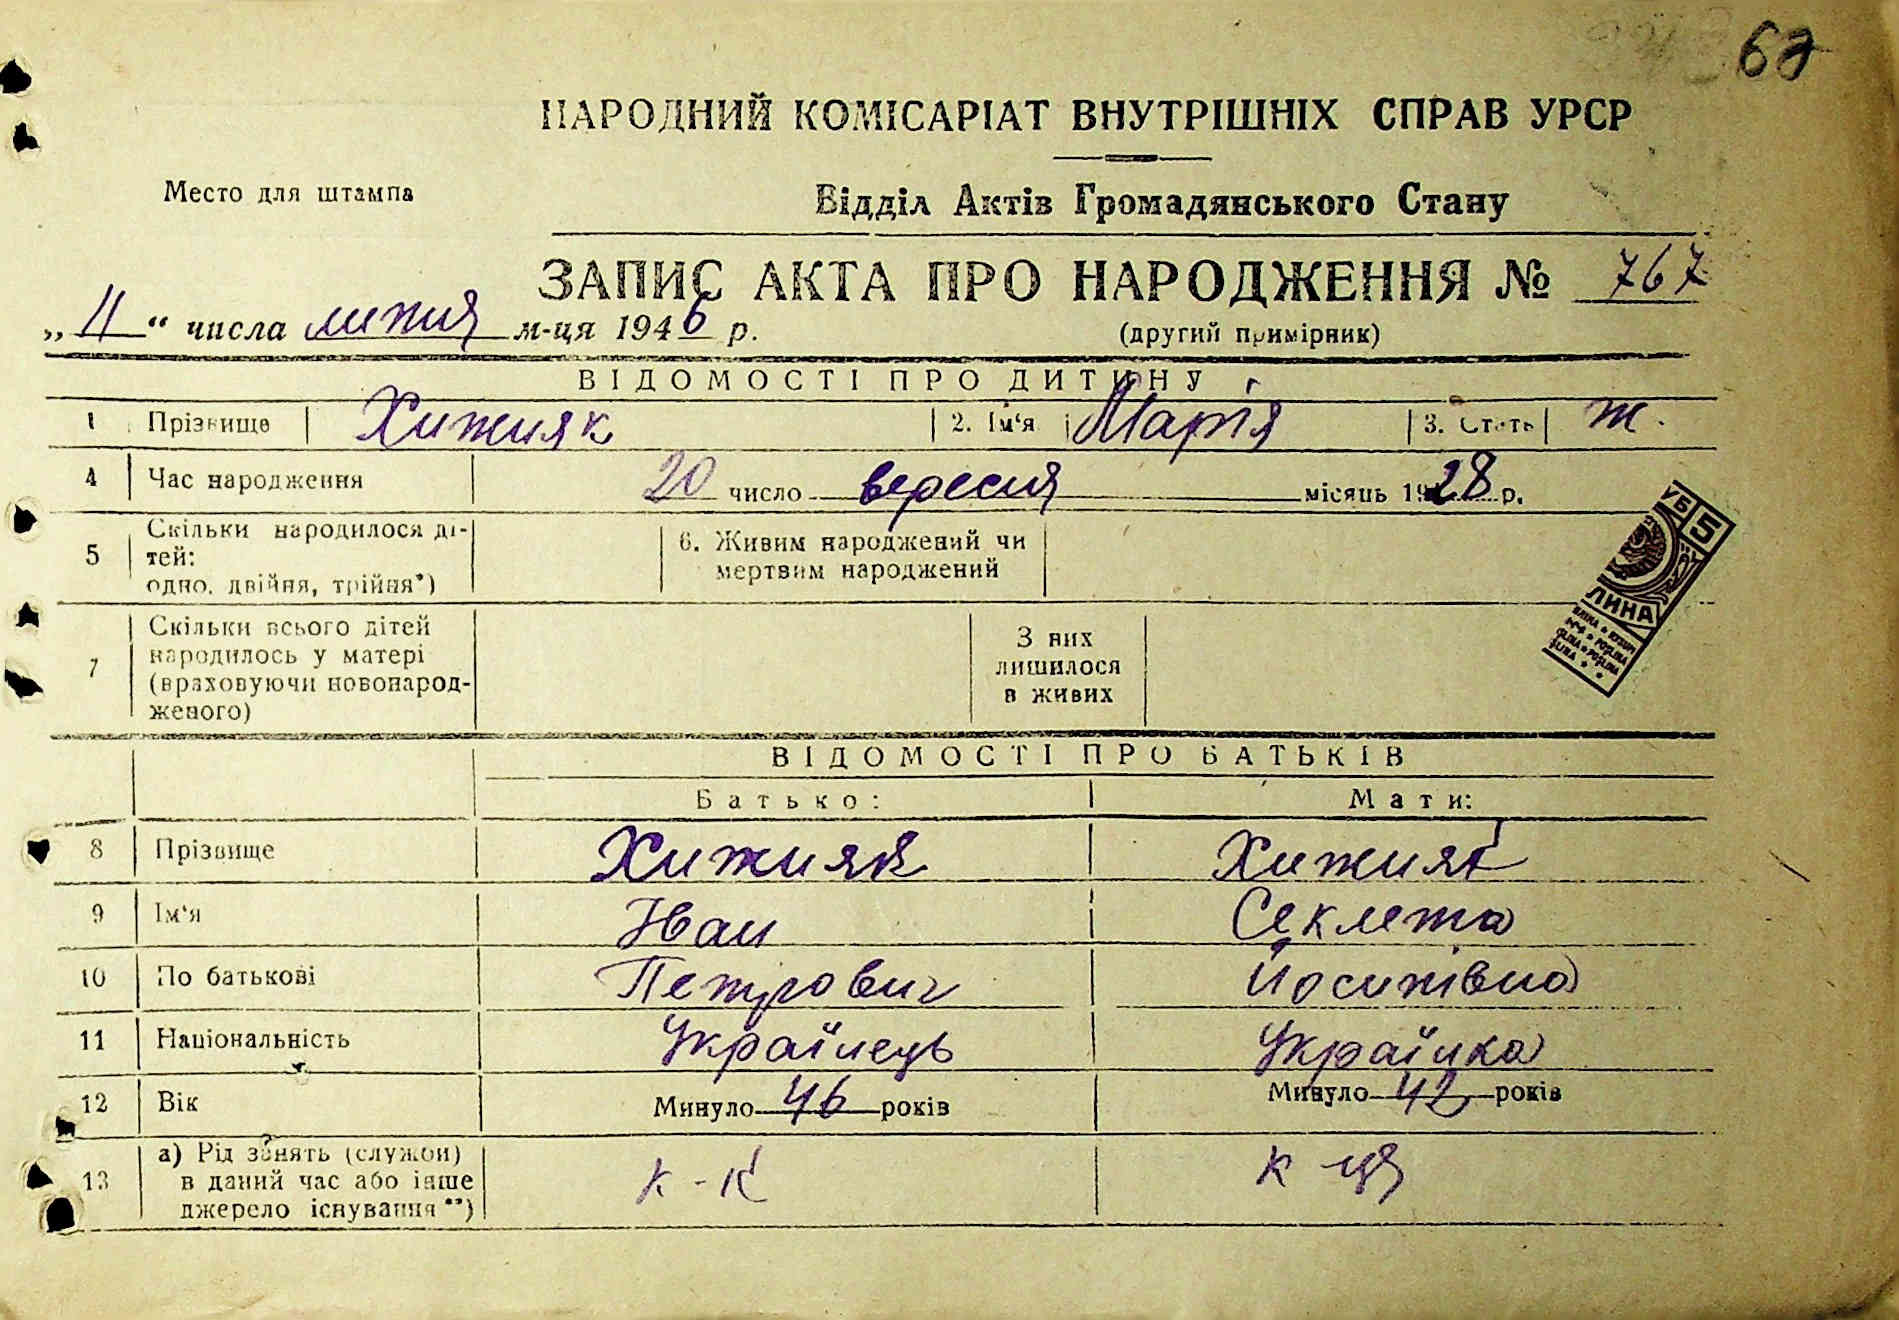 62
НАРОДНИЙ КОМІСАРІАТ ВНУТРІШНІХ СПРАВ УРСР
Место для штампа
Відділ Актів Громадянського Стану
ЗАПИС АКТА ПРО НАРОДЖЕННЯ № 767
„11“ числа липня м-ця 1946 р.
(другий примірник)
ВІДОМОСТІ ПРО ДИТИНУ
1 Прізвище Хижняк 2. Ім‘я Марія 3. Стать ж.
4 Час народження 20 число вересня місяць 1928 р.
5 Скільки народилося ді-
тей:
одно, двійня, трійня*)
6. Живим народжений чи
мертвим народжений
7 Скільки всього дітей
народилось у матері
(враховуючи новонарод-
женого)
З них
лишилося
в живих
5
ЛИНА
ВІДОМОСТІ ПРО БАТЬКІВ
Батько: Мати:
8 Прізвище Хижняк Хижняк
9 Ім‘я Іван Секлета
10 По батькові Петрович Йосипівна
11 Національність Українець Українка
12 Вік Минуло 46 років Минуло 42 років
13 а) Рід занять (служби)
в даний час або інше
джерело існування**)
к-к к-ця